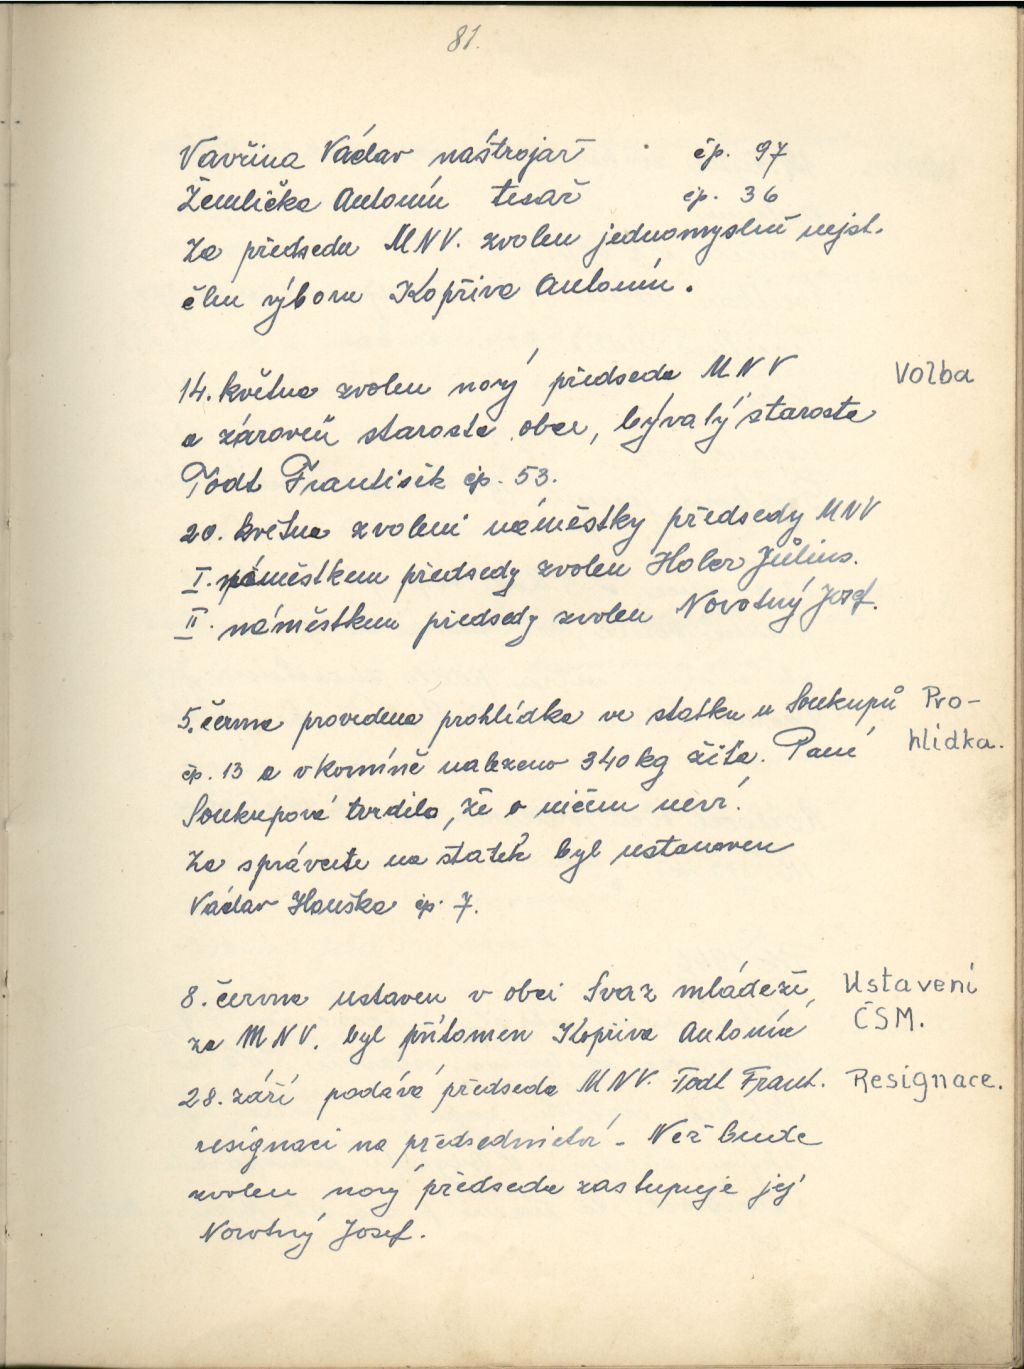 81.
Vavřina Václav nástrojař čp. 97
Žemlička Antonín tesař čp. 36
Za předsedu MNV. zvolen jednomyslně nejst.
člen výboru Kopřiva Antonín.
14. května zvolen nový předseda MNV Volba
a zároveň starosta obce, bývalý starosta
Tódt František čp. 53.
20. května zvoleni náměstky předsedy MNV
I. náměstkem předsedy zvolen Holer Július.
II. náměstkem předsedy zvolen Novotný Josef.
5. června provedena prohlídka ve statku u Soukupů Pro-
čp. 13 a v komíně nalezeno 340 kg žita. Paní hlídka.
Soukupová tvrdila, že o ničem neví.
Za správce na statek byl ustanoven
Václav Houška čp. 7.
8. června ustaven v obci Svaz mládeže, Ustavení
za MNV. byl přítomen Kopřiva Antonín ČSM.
28. září podává předseda MNV. Todt Frant. Resignace.
resignaci na předsednictví - Než bude
zvolen nový předseda zastupuje jej
Novotný Josef.